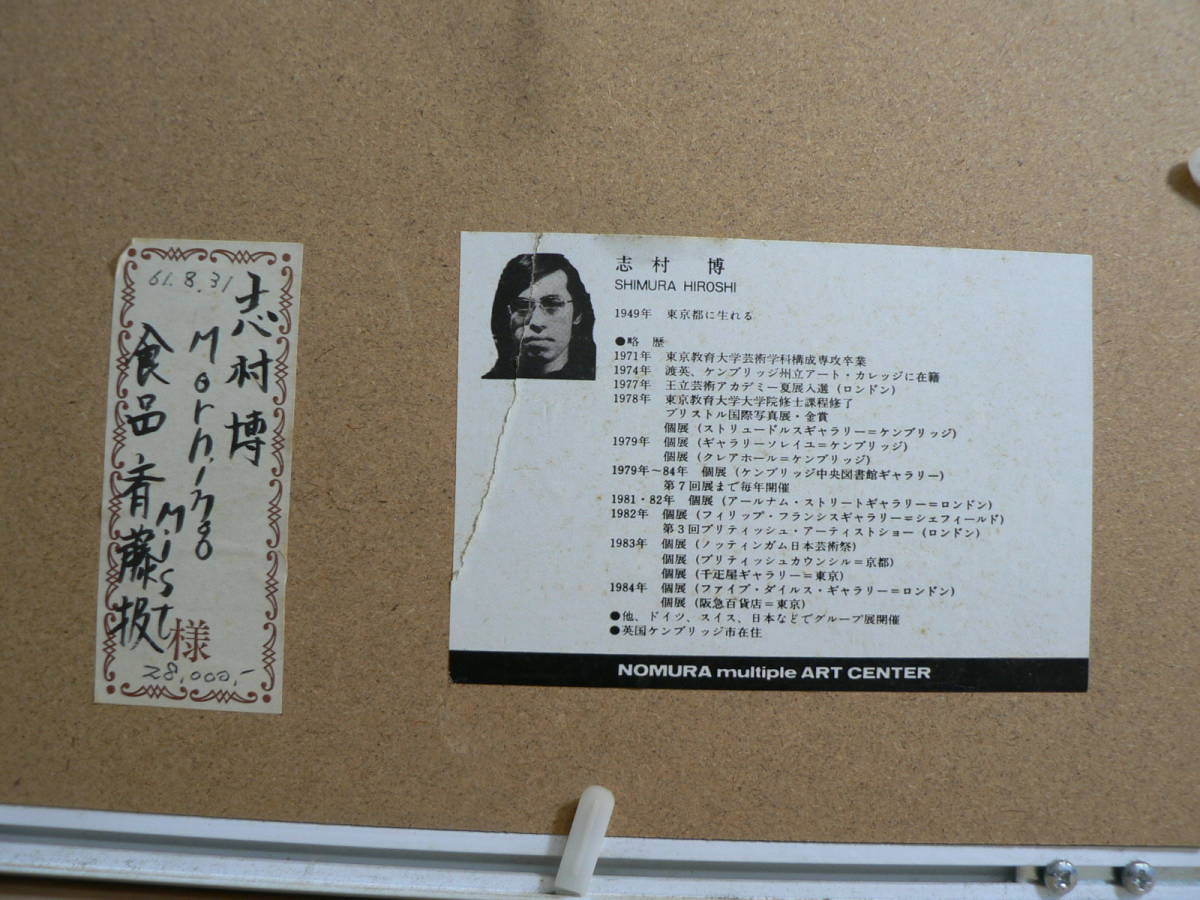 61.8.31
志村博
Morning
Mist
食品 斉藤扱
様
28,000,-
志村 博
SHIMURA HIROSHI
1949年 東京都に生れる
●略 歴
1971年 東京教育大学芸術学科構成専攻卒業
1974年 渡英、ケンブリッジ州立アート・カレッジに在籍
1977年 王立芸術アカデミー夏展入選(ロンドン)
1978年 東京教育大学大学院修士課程修了
ブリストル国際写真展・金賞
個展(ストリュードルスギャラリー=ケンブリッジ)
1979年 個展(ギャラリーソレイユ=ケンブリッジ)
個展(クレアホール=ケンブリッジ)
1979年〜84年 個展(ケンブリッジ中央図書館ギャラリー)
第7回展まで毎年開催
1981・82年 個展(アールナム・ストリートギャラリー=ロンドン)
1982年 個展(フィリップ・フランシスギャラリー=シェフィールド)
第3回ブリティッシュ・アーティストショー(ロンドン)
1983年 個展(ノッティンガム日本芸術祭)
個展(ブリティッシュカウンシル=京都)
個展(千疋屋ギャラリー=東京)
1984年 個展(ファイブ・ダイルス・ギャラリー=ロンドン)
個展(阪急百貨店=東京)
●他、ドイツ、スイス、日本などでグループ展開催
●英国ケンブリッジ市在住
NOMURA multiple ART CENTER